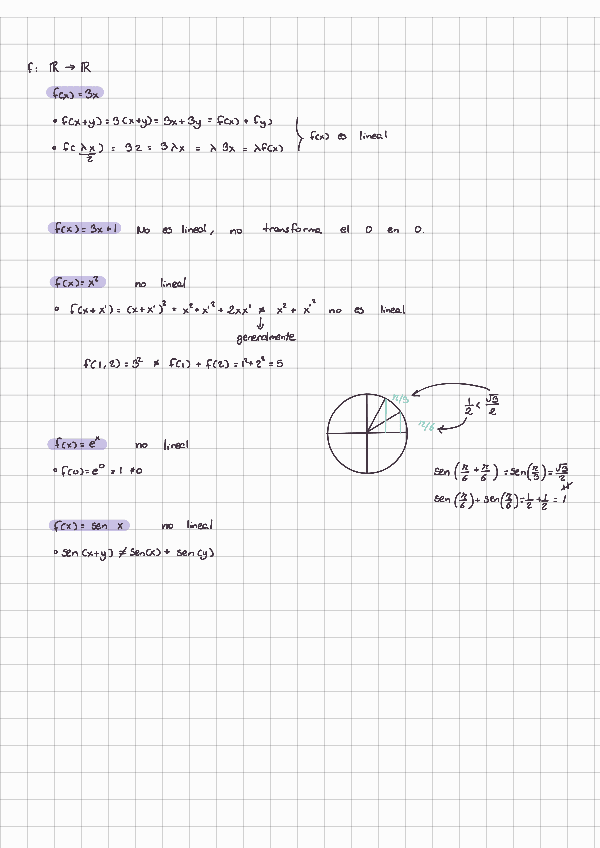 f: ℝ → ℝ
f(x) = 3x
• f(x+y) = 3(x+y) = 3x + 3y = f(x) + f(y)
• f(λx) = 3z = 3λx = λ3x = λf(x)
z
f(x) es lineal
f(x) = 3x+1 No es lineal, no transforma el 0 en 0.
f(x) = x² no lineal
• f(x+x') = (x+x')² = x² + x'² + 2xx' ≠ x² + x'² no es lineal
↓
generalmente
f(1,2) = 3² ≠ f(1) + f(2) = 1² + 2² = 5
π/3
1/2 < √3/2
π/6
f(x) = eˣ no lineal
• f(0) = e⁰ = 1 ≠ 0
sen (π/6 + π/6) = sen (π/3) = √3/2
≠
sen (π/6) + sen (π/6) = 1/2 + 1/2 = 1
f(x) = sen x no lineal
• sen (x+y) ≠ sen(x) + sen (y)